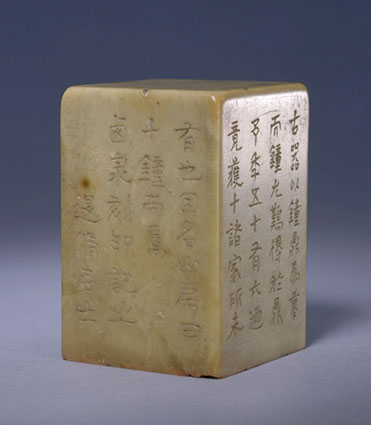 古器以鐘鼎為重
而鐘尤難得於鼎
予季五十有六
竟獲十諸家所未
有也因名山房曰
十鐘而屬
鹵泉刻印記之
退脩居士